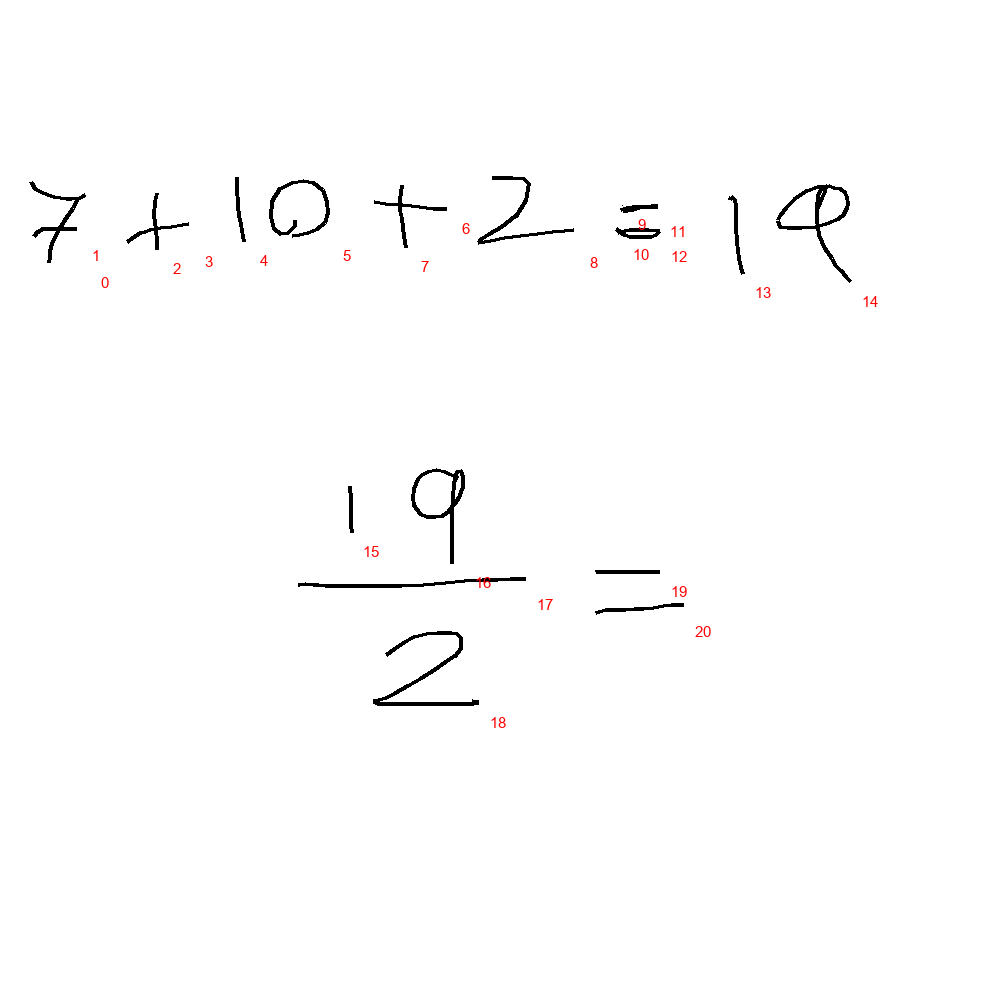 7+10+2=19
19/2=
0 1 2 3 4 5 6 7 8 9 10 11 12 13 14 15 16 17 18 19 20